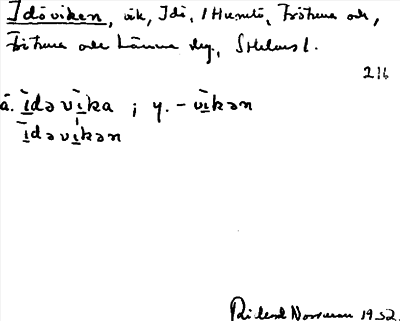 Idöviken, vik, Idö, Husarö, Frötuna och,
Frötuna och Länna skg, Sthlms l.
216
ä. ìdəvìka ; y. -vìkən
ìdəvìkən
Rikard Norrman 1932.